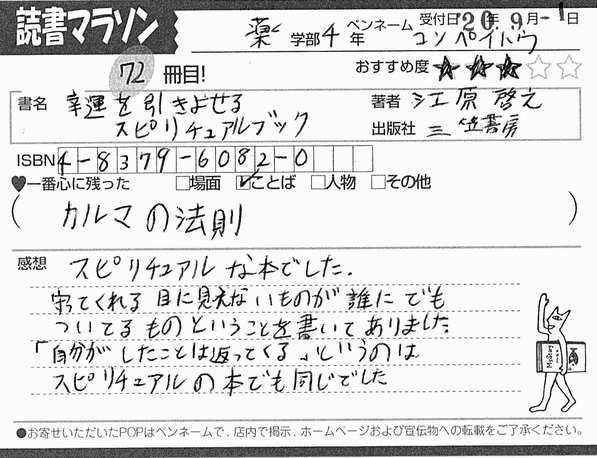 読書マラソン
薬 学部 4 年 ペンネーム コンペイトウ 受付日 '20年 9月 -1日
72 冊目!
おすすめ度 ★★★☆☆
書名 幸運を引きよせる
スピリチュアルブック
著者 江原啓之
出版社 三笠書房
ISBN 4-8379-6082-0
♥一番心に残った □場面 ☑ことば □人物 □その他
( カルマの法則 )
感想 スピリチュアルな本でした.
守ってくれる目に見えないものが誰にでも
ついてるものということを書いてありました.
「自分がしたことは返ってくる」というのは
スピリチュアルの本でも同じでした
●お寄せいただいたPOPはペンネームで、店内で掲示、ホームページおよび宣伝物への転載をご了承ください。